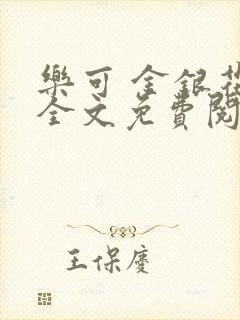 樂可 金銀花
全文免費閱
王保慶